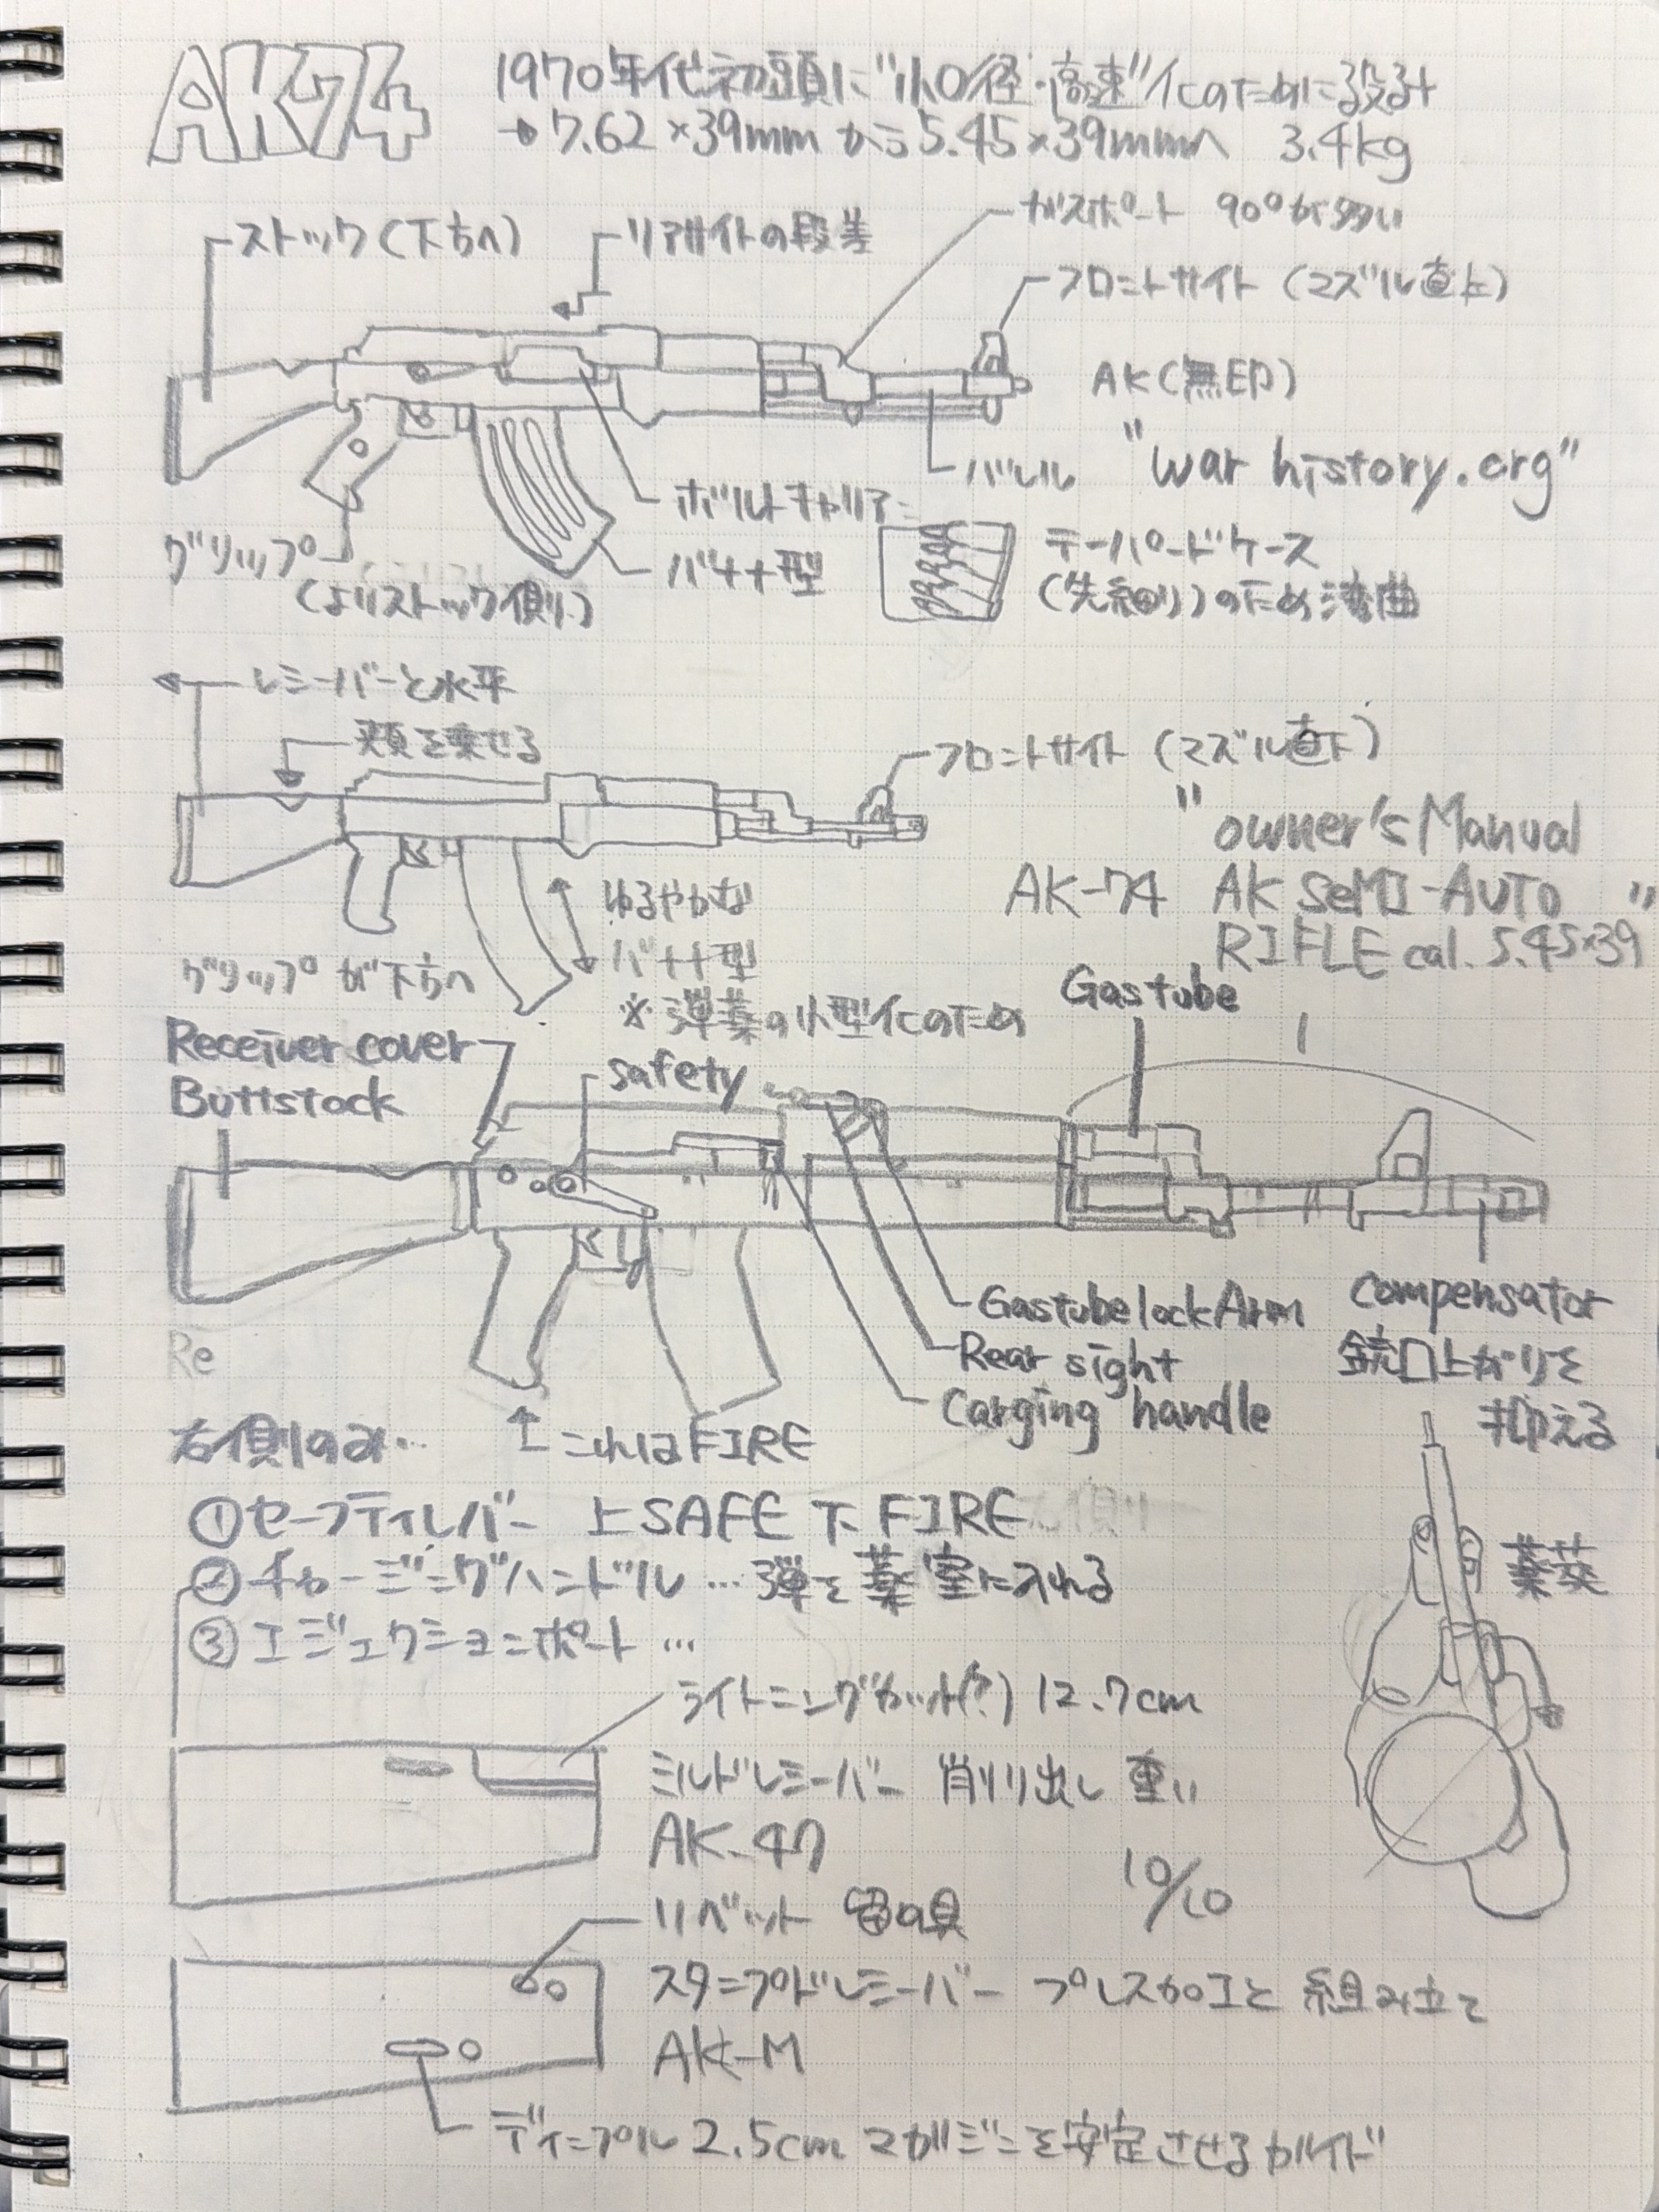 AK74
1970年代初頭に"小口径・高速"化のために設計
→7.62×39mmから5.45×39mmへ 3.4kg
ストック(下方へ)
リアサイトの段差
ガスポート 90°が多い
フロントサイト(マズル直上)
AK(無印)
"war history.org"
バレル
ボルトキャリアー
グリップ
(よりストック側に)
バナナ型
テーパードケース
(先細り)のため湾曲
レシーバーと水平
頬を乗せる
フロントサイト(マズル直下)
"owner's Manual
AK-74 AK SeMI-AUTO "
RIFLE cal. 5.45×39
ゆるやかな
バナナ型
※弾薬の小型化のため
グリップが下方へ
Gastube
Receiver cover
Buttstock
safety
Gastube lock Arm
Rear sight
Carging handle
Compensator
銃口上がりを
抑える
Re
右側のみ…
これはFIRE
①セーフティレバー 上SAFE 下FIRE
②チャージングハンドル…弾を薬室に入れる
③エジェクションポート…
薬莢
ライトニングカット(?) 12.7cm
ミルドレシーバー 削り出し 重い
AK-47
10/10
リベット 留め具
スタンプドレシーバー プレス加工と組み立て
AK-M
ディンプル 2.5cm マガジンを安定させるガイド